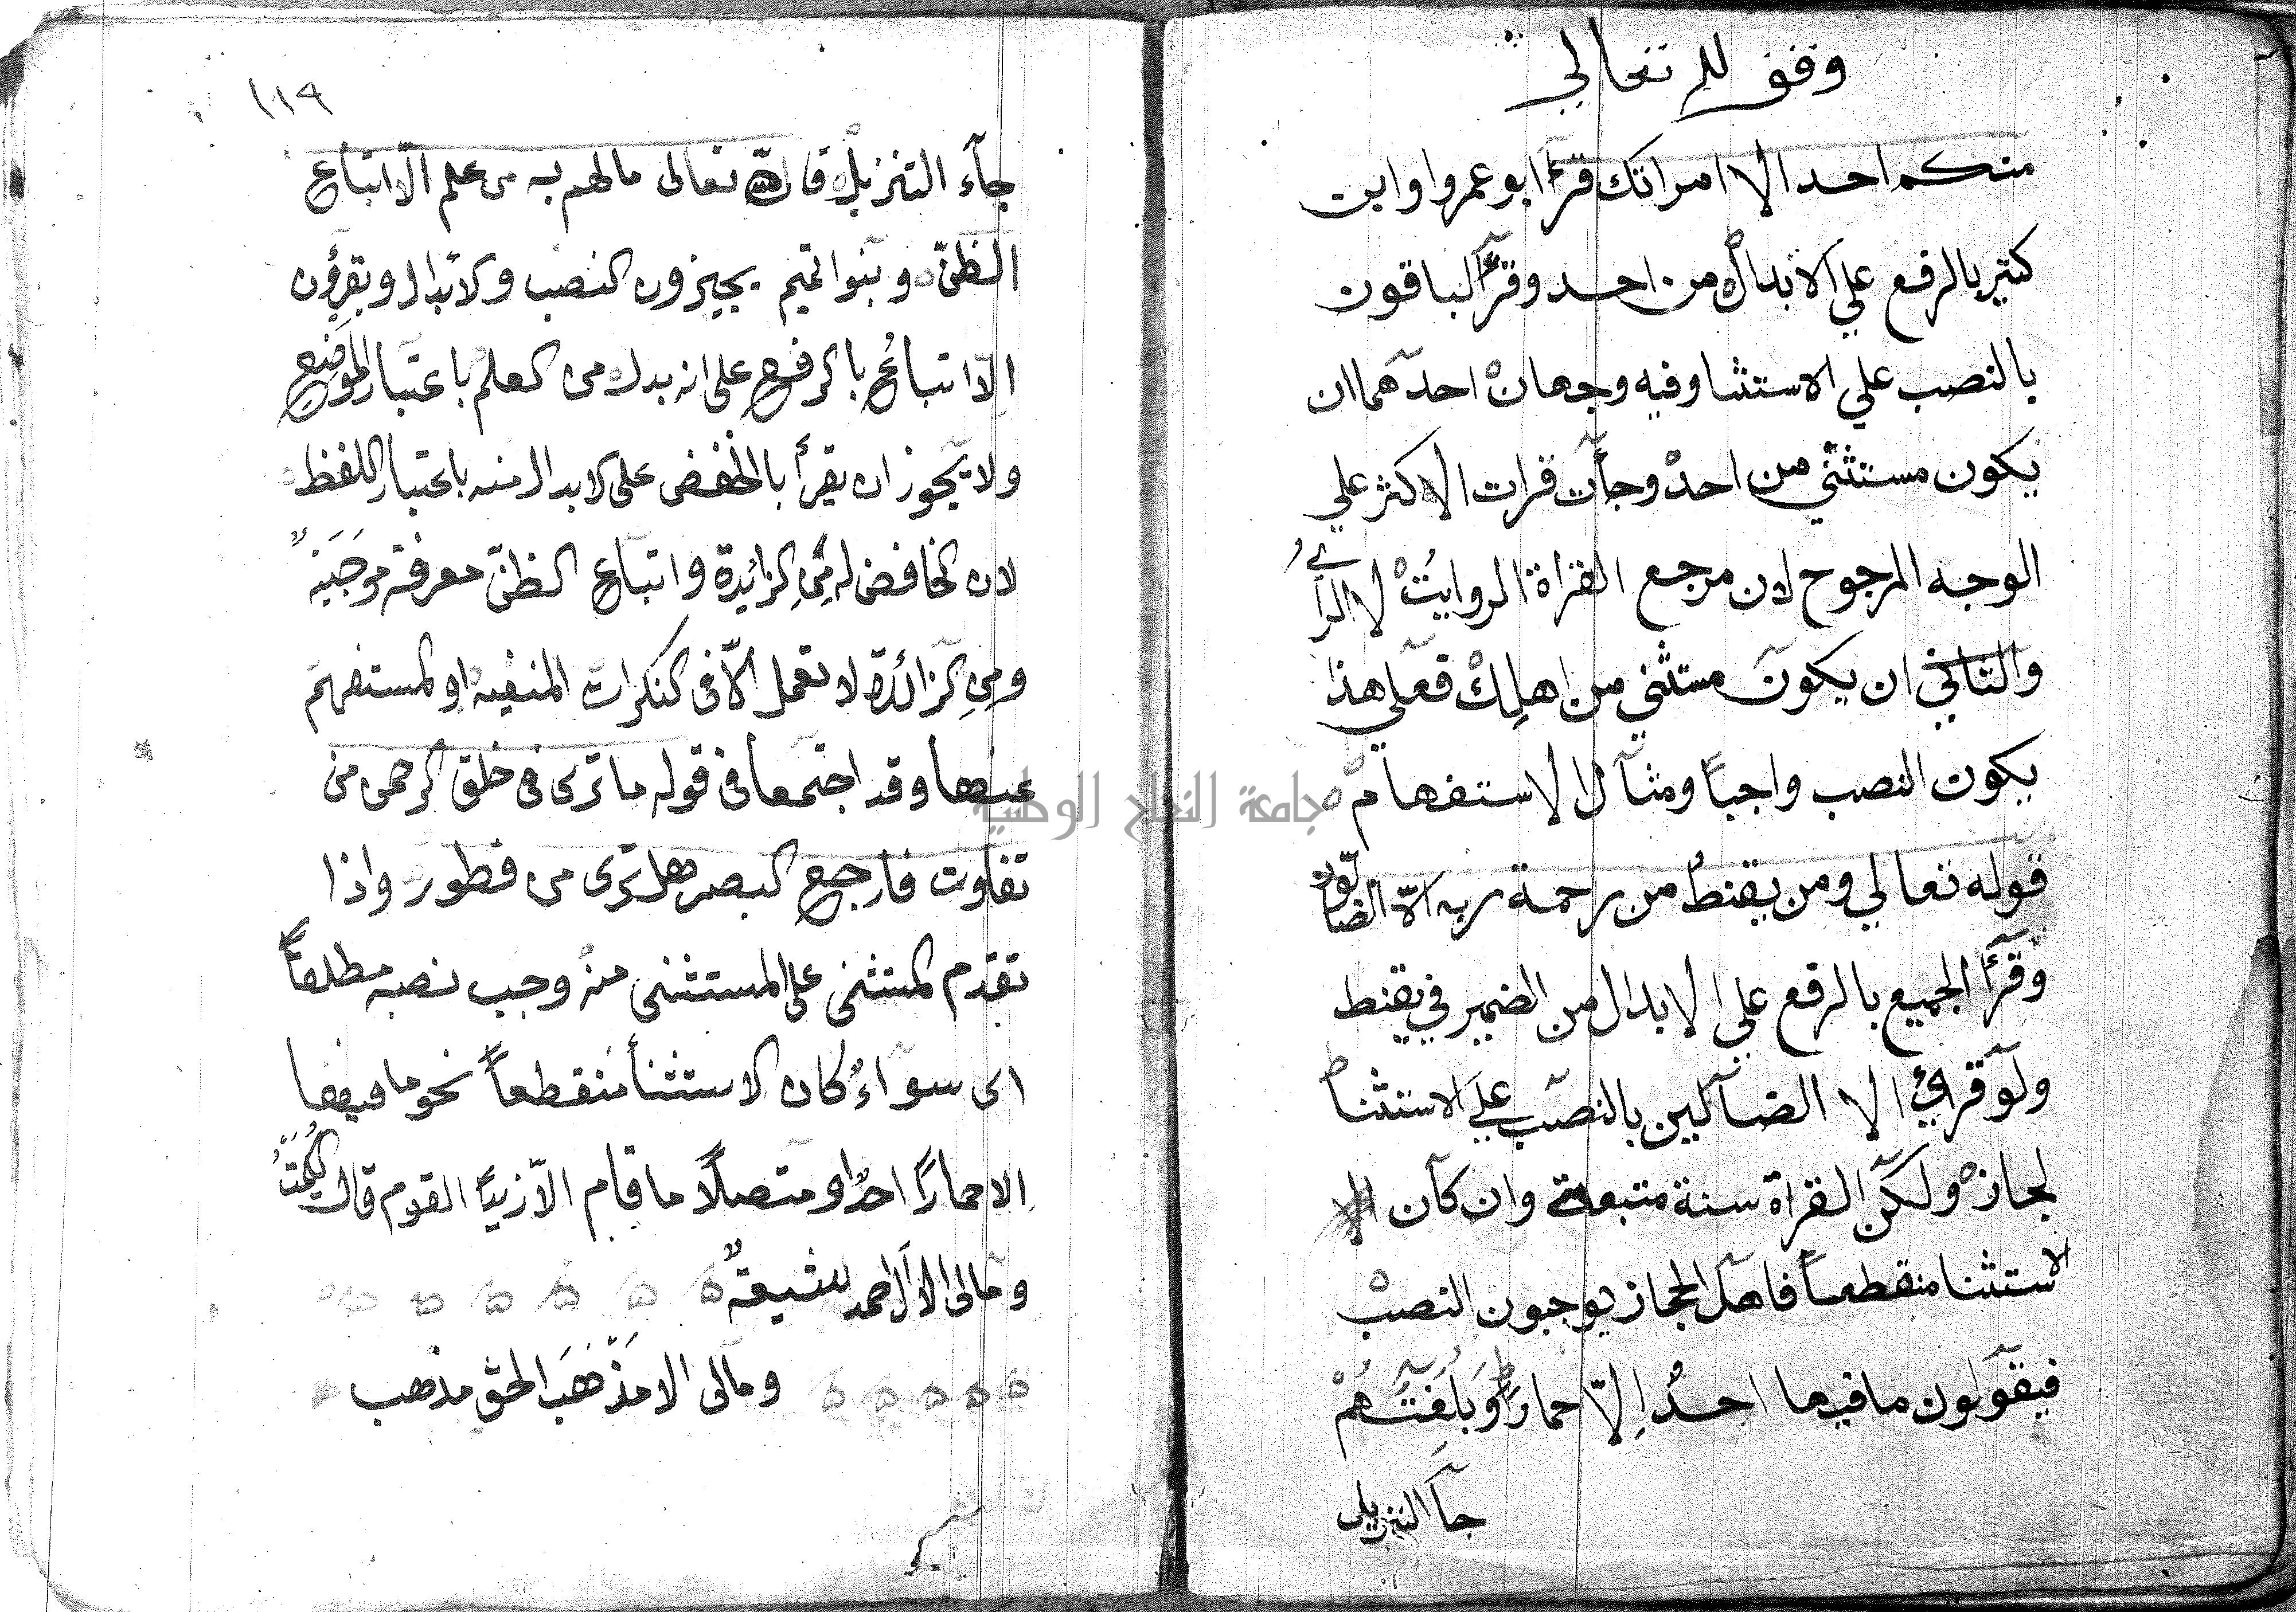 وقف لله تعالي
منكم احد الا امراتك قرأ ابو عمروا وابن
كثير بالرفع علي الابدال من احد وقرأ الباقون
بالنصب علي الاستثنا وفيه وجهان احدهما ان
يكون مستثني من احد وجأت قرات الاكثر علي
الوجه المرجوح لان مرجع القراة الروايت لا الراي
والثاني ان يكون مستثني من اهلك فعلي هذا
يكون النصب واجباً ومثال الاستفهام
قوله تعالي ومن يقنط من رحمة ربه الّا الضالون
وقرأ الجميع بالرفع علي الابدال من الضمير في يقنط
ولو قرئ الا الضالين بالنصب علي الاستثنا
لجاز ولكن القراة سنة متبعة وان كان
الاستثنا منقطعاً فاهل الحجاز يوجبون النصب
فيقولون ما فيها احدُ اِلاّ حماراً وبلغتهم
جأ التنزيل
١١٩
جآء التنزيل قال الله تعالى مالهم به من علم الّا اتباع
الظنّ وبنوا تميم يجيزون النصب والابدال ويقرؤن
الّا اتباعُ بالرفع على انه بدل من العلم باعتبار الموضع
ولا يجوز ان يقرأ بالخفض على الابدال منه باعتبار اللفظ
لان الخافض له مِن الزائدة واتباع الظنّ معرفة موجبة
ومِن الزائدة لا تعمل الّا فى النكرات المنفيه او المستفهم
عنها وقد اجتمعا فى قوله ما ترى فى خلق الرحمن من
تفاوت فارجع البصر هل ترى من فطور واذا
تقدم المستثنى على المستثنى منه وجب نصبه مطلقاً
اى سوآءٌ كان الاستثنأ منقطعاً نحو ما فيها
الا حماراً احدٌ او متصلاً ما قام الّا زيداً القوم قال الكُمَيْتُ
ومالى الا آل احمد شيعةٌ
ومالى الا مَذْهَبَ الحق مذهب
جامعة النجاح الوطنية